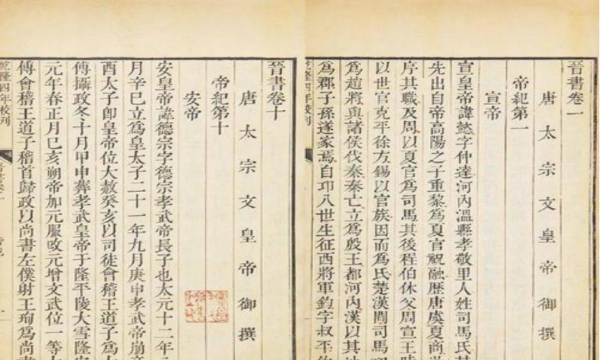 晉書卷一
唐太宗文皇帝御撰
帝紀第一
宣帝
宣皇帝諱懿字仲達河內溫縣孝敬里人姓司馬氏
先出自帝高陽之子重黎爲夏官祝融歷唐虞夏商
序其職及周以夏官爲司馬其後程伯休父周宣王時
以世官克平徐方錫以官族因而爲氏楚漢間司馬
爲趙將與諸侯伐秦秦亡立爲殷王都河內漢以其地
爲郡子孫遂家焉自卬八世生征西將軍鈞字叔平
乾隆四年校刊
晉書卷十
唐太宗文皇帝御撰
帝紀第十
安帝
安皇帝諱德宗字德宗孝武帝長子也太元十二年
月辛巳立爲皇太子二十一年九月庚申孝武帝崩
酉太子即皇帝位大赦癸亥以司徒會稽王道子爲
傅攝政冬十月甲申葬孝武皇帝于隆平陵大雪隆安
元年春正月己亥朔帝加元服改元增文武位一等
傅會稽王道子稽首歸政以尚書左僕射王珣爲尚書
乾隆四年校刊